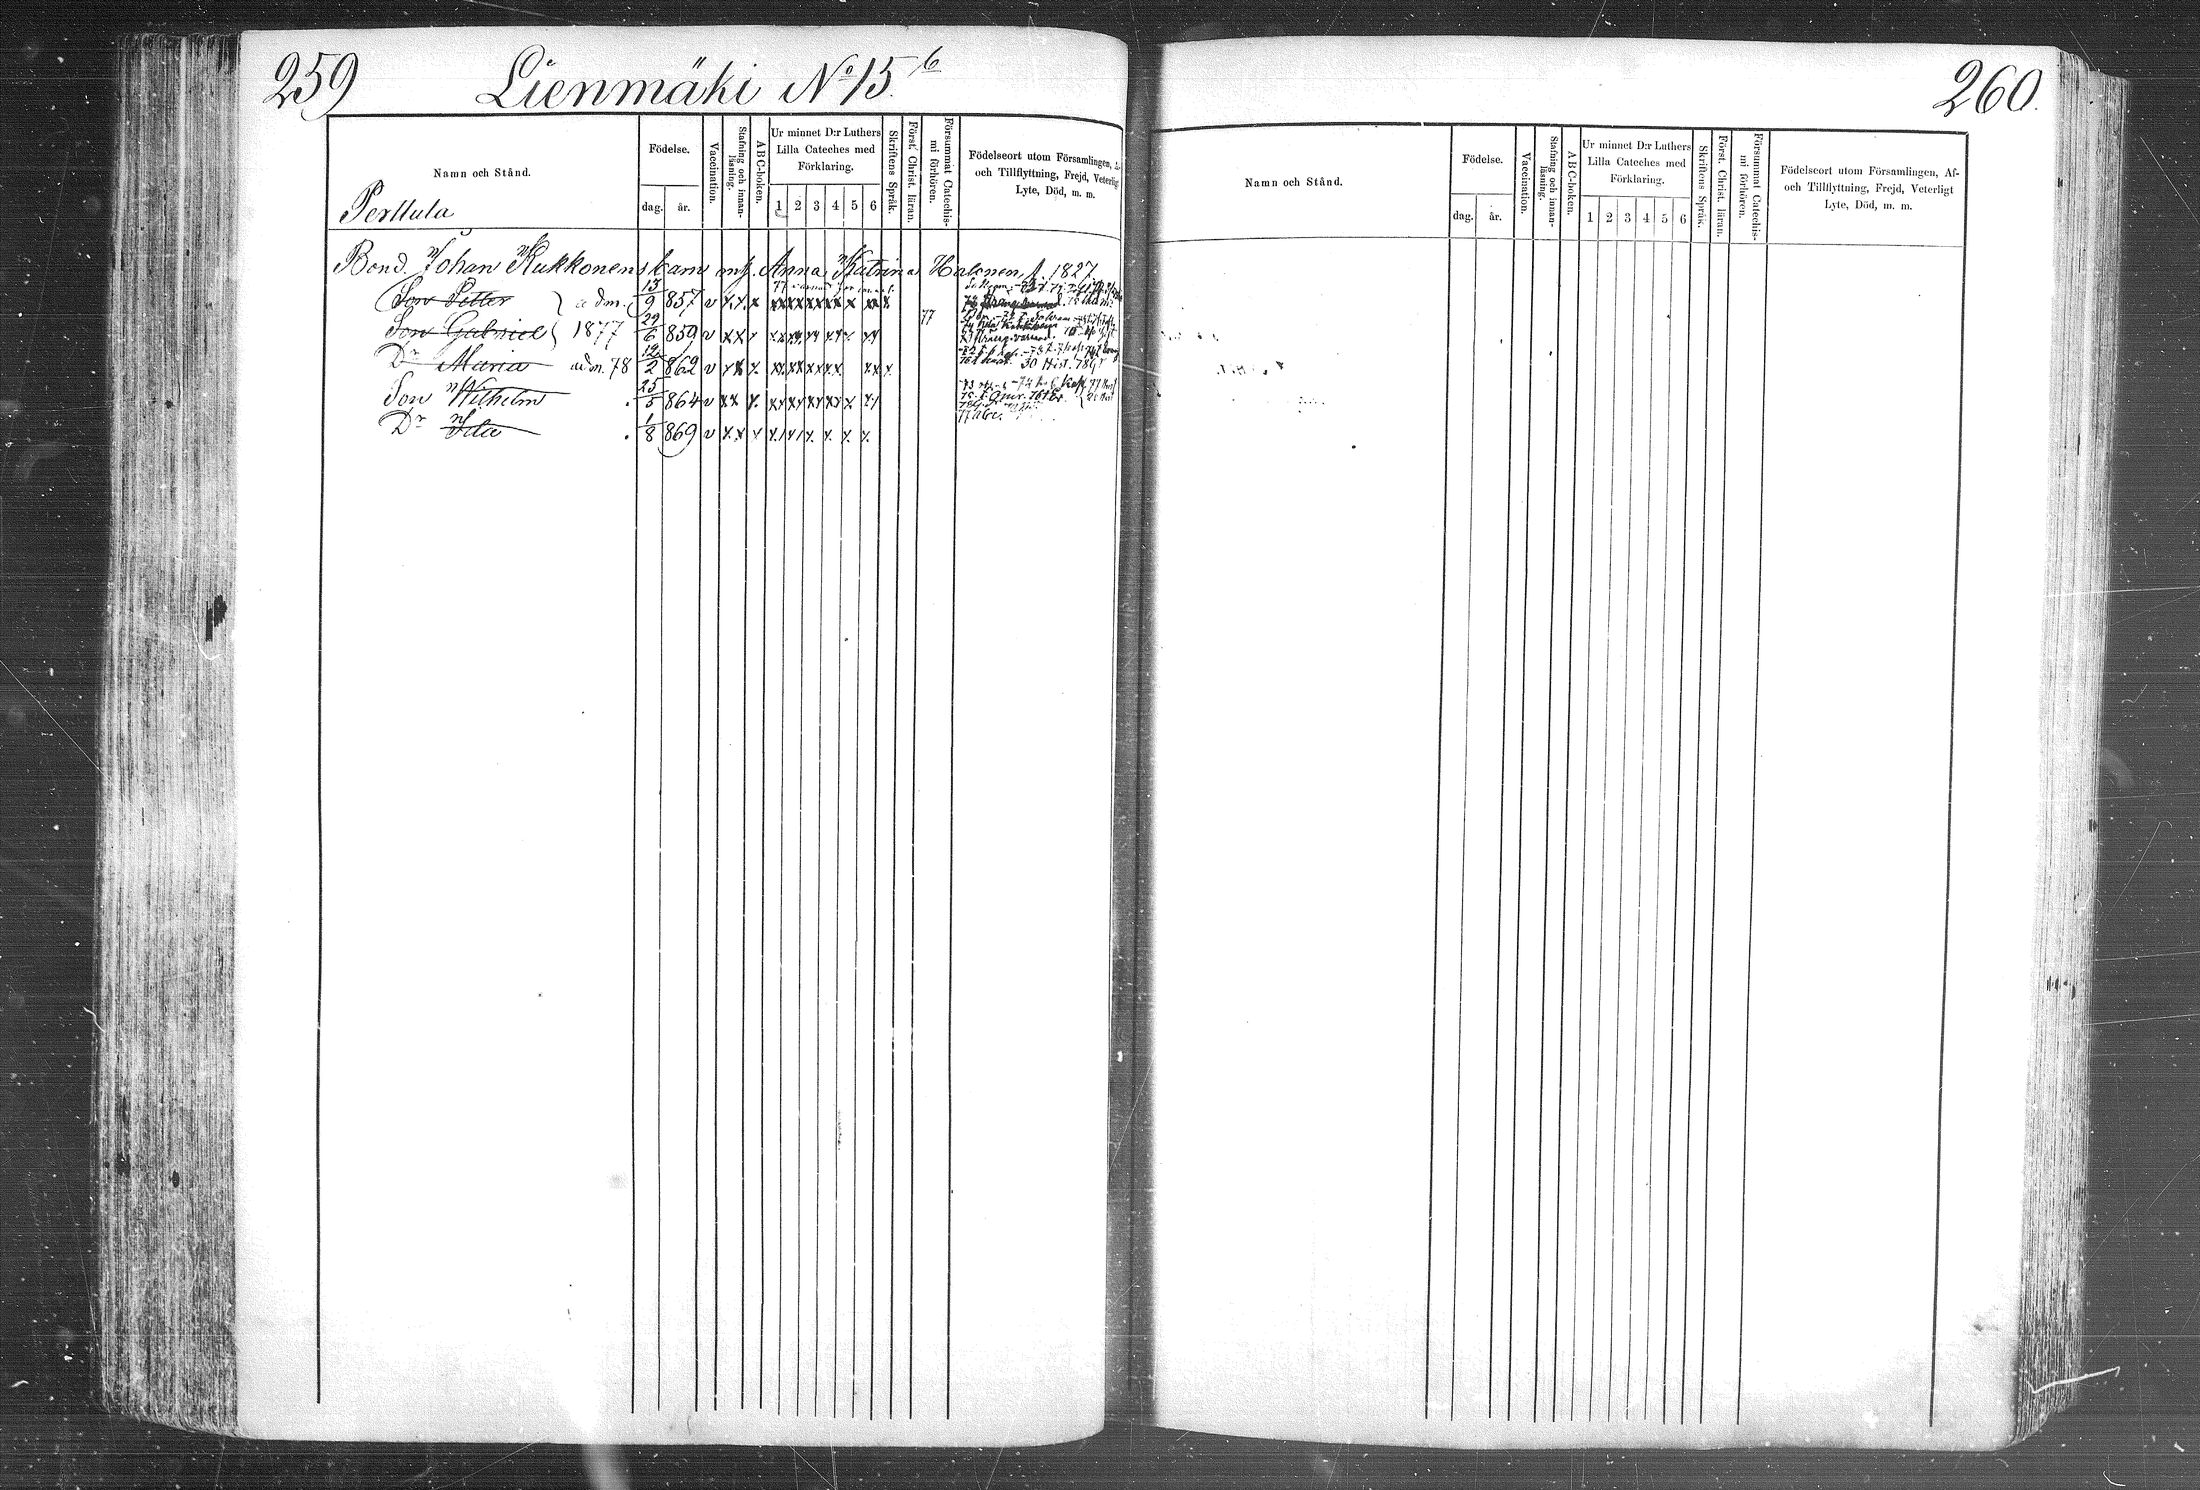 259
Lienmäki No 15.
Namn och Stånd.
Födelse.
dag.
år.
Vaccination.
Stafning och innan-
läsning.
ABC-boken.
Ur minnet D:r Luthers
Lilla Cateches med
Förklaring.
1 2 3 4 5 6
Skriftens Språk.
Först. Christ. läran.
Försummat Catechis-
mi förhören.
Födelseort utom Församlingen,
och Tillflyttning, Frejd, Veterligt
Lyte, Död, m. m.
Perttula
Bond. Johan Kukkonens barn m. Anna Katrina Halonen f. 1827
Son Petter adm. 13/9 857 v
Son Gabriel 1877 29/6 859 v 77
Dr Maria adm. 78 12/2 862 v
Son Wilhelm 25/5 864 v
Dr Ida 1/8 869 v
260.
Namn och Stånd.
Födelse.
dag.
år.
Vaccination.
Stafning och innan-
läsning.
ABC-boken.
Ur minnet D:r Luthers
Lilla Cateches med
Förklaring.
1 2 3 4 5 6
Skriftens Språk.
Först. Christ. läran.
Försummat Catechis-
mi förhören.
Födelseort utom Församlingen, Af-
och Tillflyttning, Frejd, Veterligt
Lyte, Död, m. m.